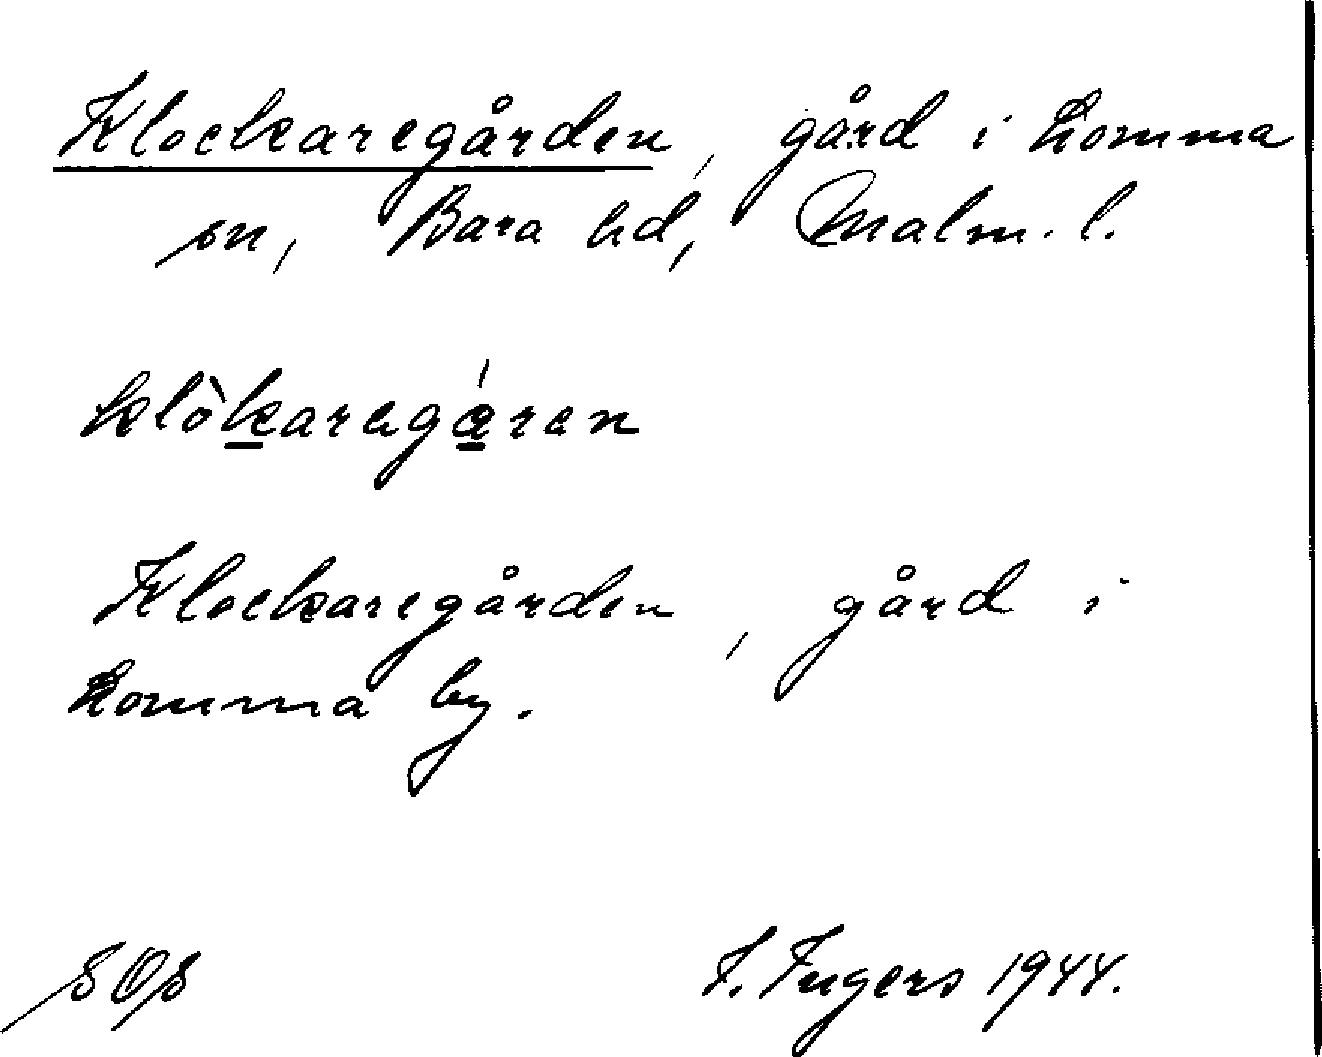 Klockaregården, gård i Lomma
sn, Bara hd, Malm. l.
klòkaregáren
Klockaregården, gård i
Lomma by.
I. Ingers 1944.